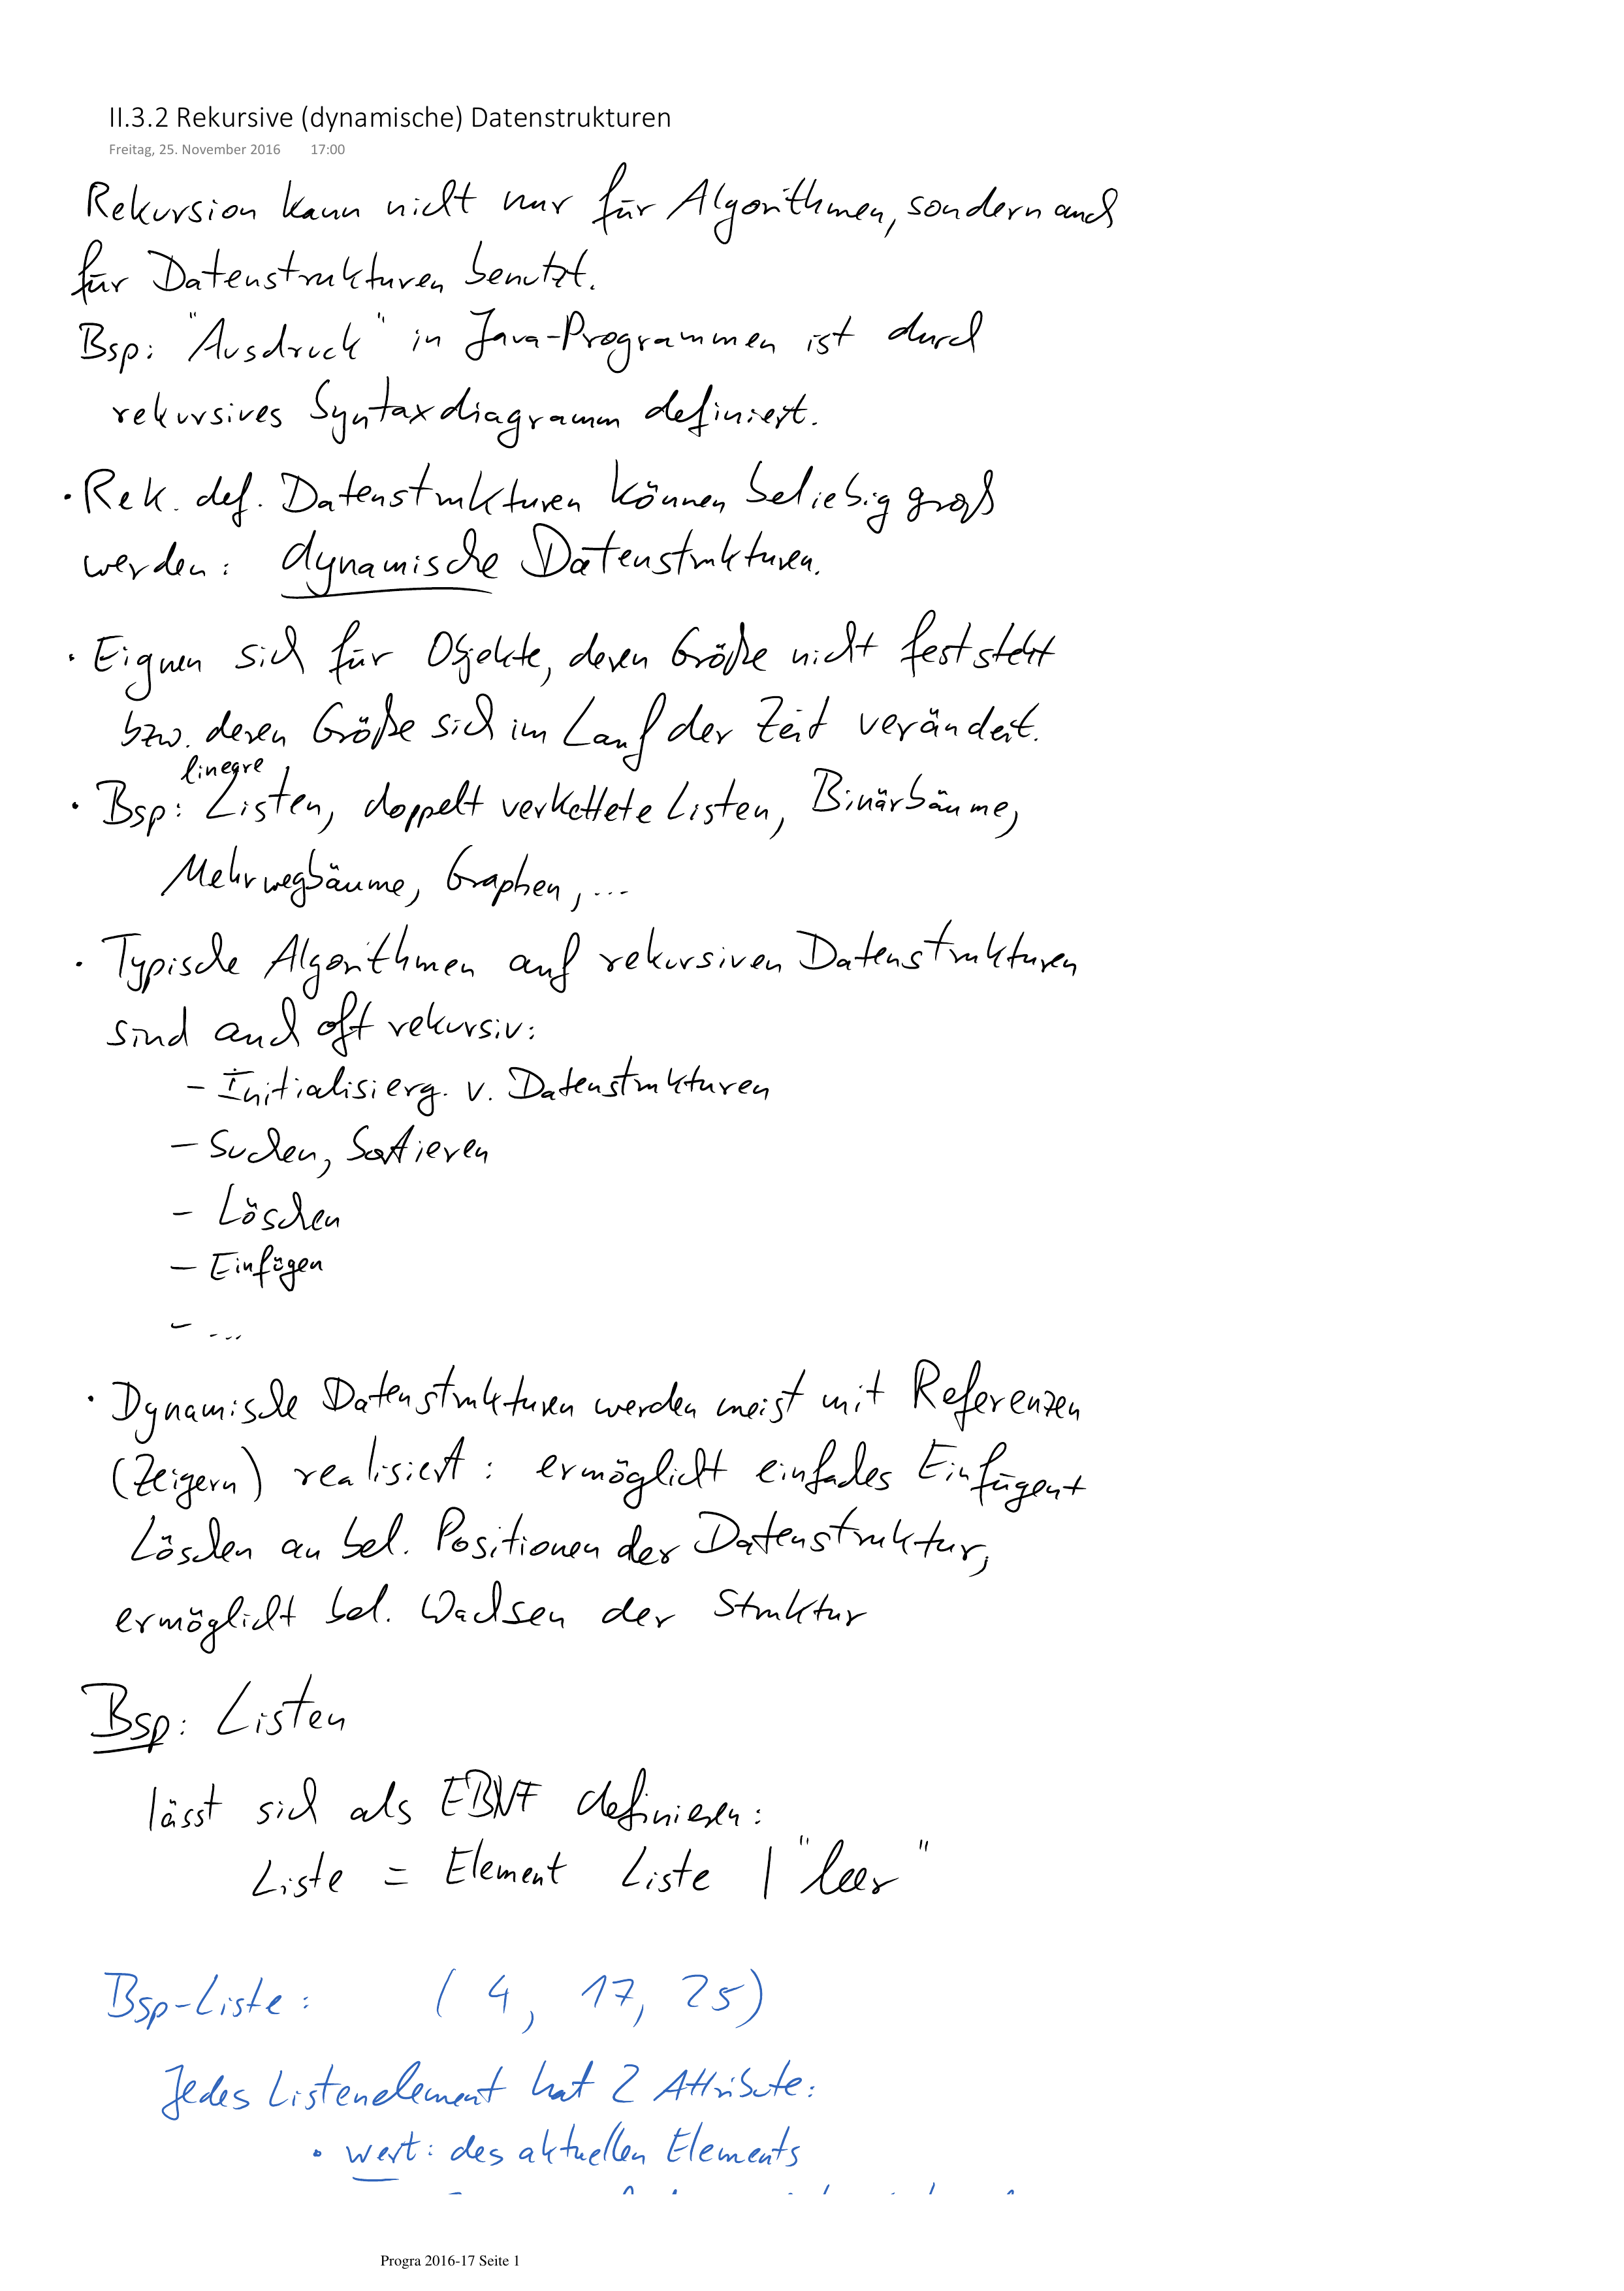 II.3.2 Rekursive (dynamische) Datenstrukturen
Freitag, 25. November 2016 17:00
Rekursion kann nicht nur für Algorithmen, sondern auch
für Datenstrukturen benutzt.
Bsp: "Ausdruck" in Java-Programmen ist durch
rekursives Syntaxdiagramm definiert.
• Rek. def. Datenstrukturen können beliebig groß
werden: dynamische Datenstrukturen.
• Eignen sich für Objekte, deren Größe nicht feststeht
bzw. deren Größe sich im Lauf der Zeit verändert.
lineare
• Bsp: Listen, doppelt verkettete Listen, Binärbäume,
Mehrwegbäume, Graphen, ...
• Typische Algorithmen auf rekursiven Datenstrukturen
sind auch oft rekursiv:
- Initialisierg. v. Datenstrukturen
- Suchen, Sortieren
- Löschen
- Einfügen
- ...
• Dynamische Datenstrukturen werden meist mit Referenzen
(Zeigern) realisiert: ermöglicht einfaches Einfügen +
Löschen an bel. Positionen der Datenstruktur,
ermöglicht bel. Wachsen der Struktur
Bsp: Listen
lässt sich als EBNF definieren:
Liste = Element Liste | "leer"
Bsp-Liste: ( 4, 17, 25)
Jedes Listenelement hat 2 Attribute:
• wert: des aktuellen Elements
Progra 2016-17 Seite 1